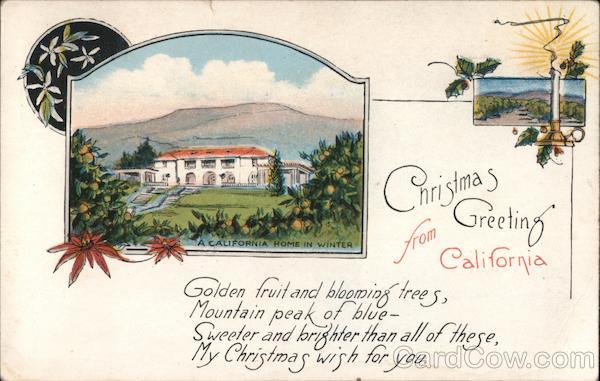 A CALIFORNIA HOME IN WINTER
Christmas
Greeting
from
California
Golden fruit and blooming trees,
Mountain peak of blue—
Sweeter and brighter than all of these,
My Christmas wish for you.
CardCow.com